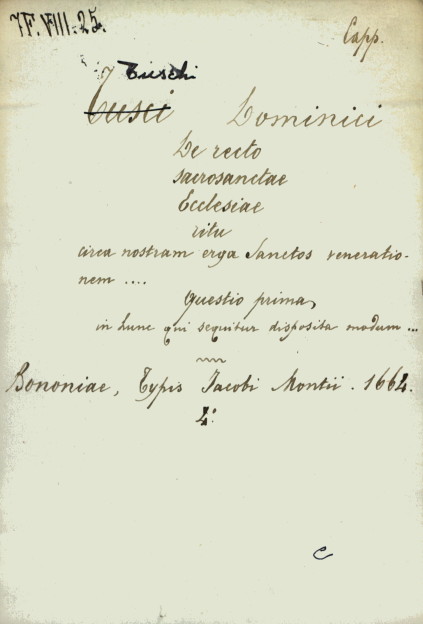 7F.VIII.25.
Capp.
Tuschi
Tusci Dominici
De recto
sacrosanctae
Ecclesiae
ritu
circa nostram erga Sanctos veneratio-
nem ....
Questio prima,
in hunc qui sequitur disposita modum ...
Bononiae, Typis Jacobi Montii. 1664.
4:
C